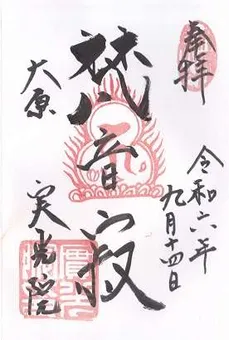 奉拝
令和六年
九月十四日
梵音殿
大原
実光院